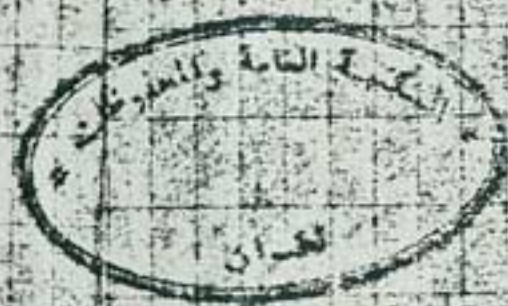 المكتبة العامة والمحفوظات
تطوان